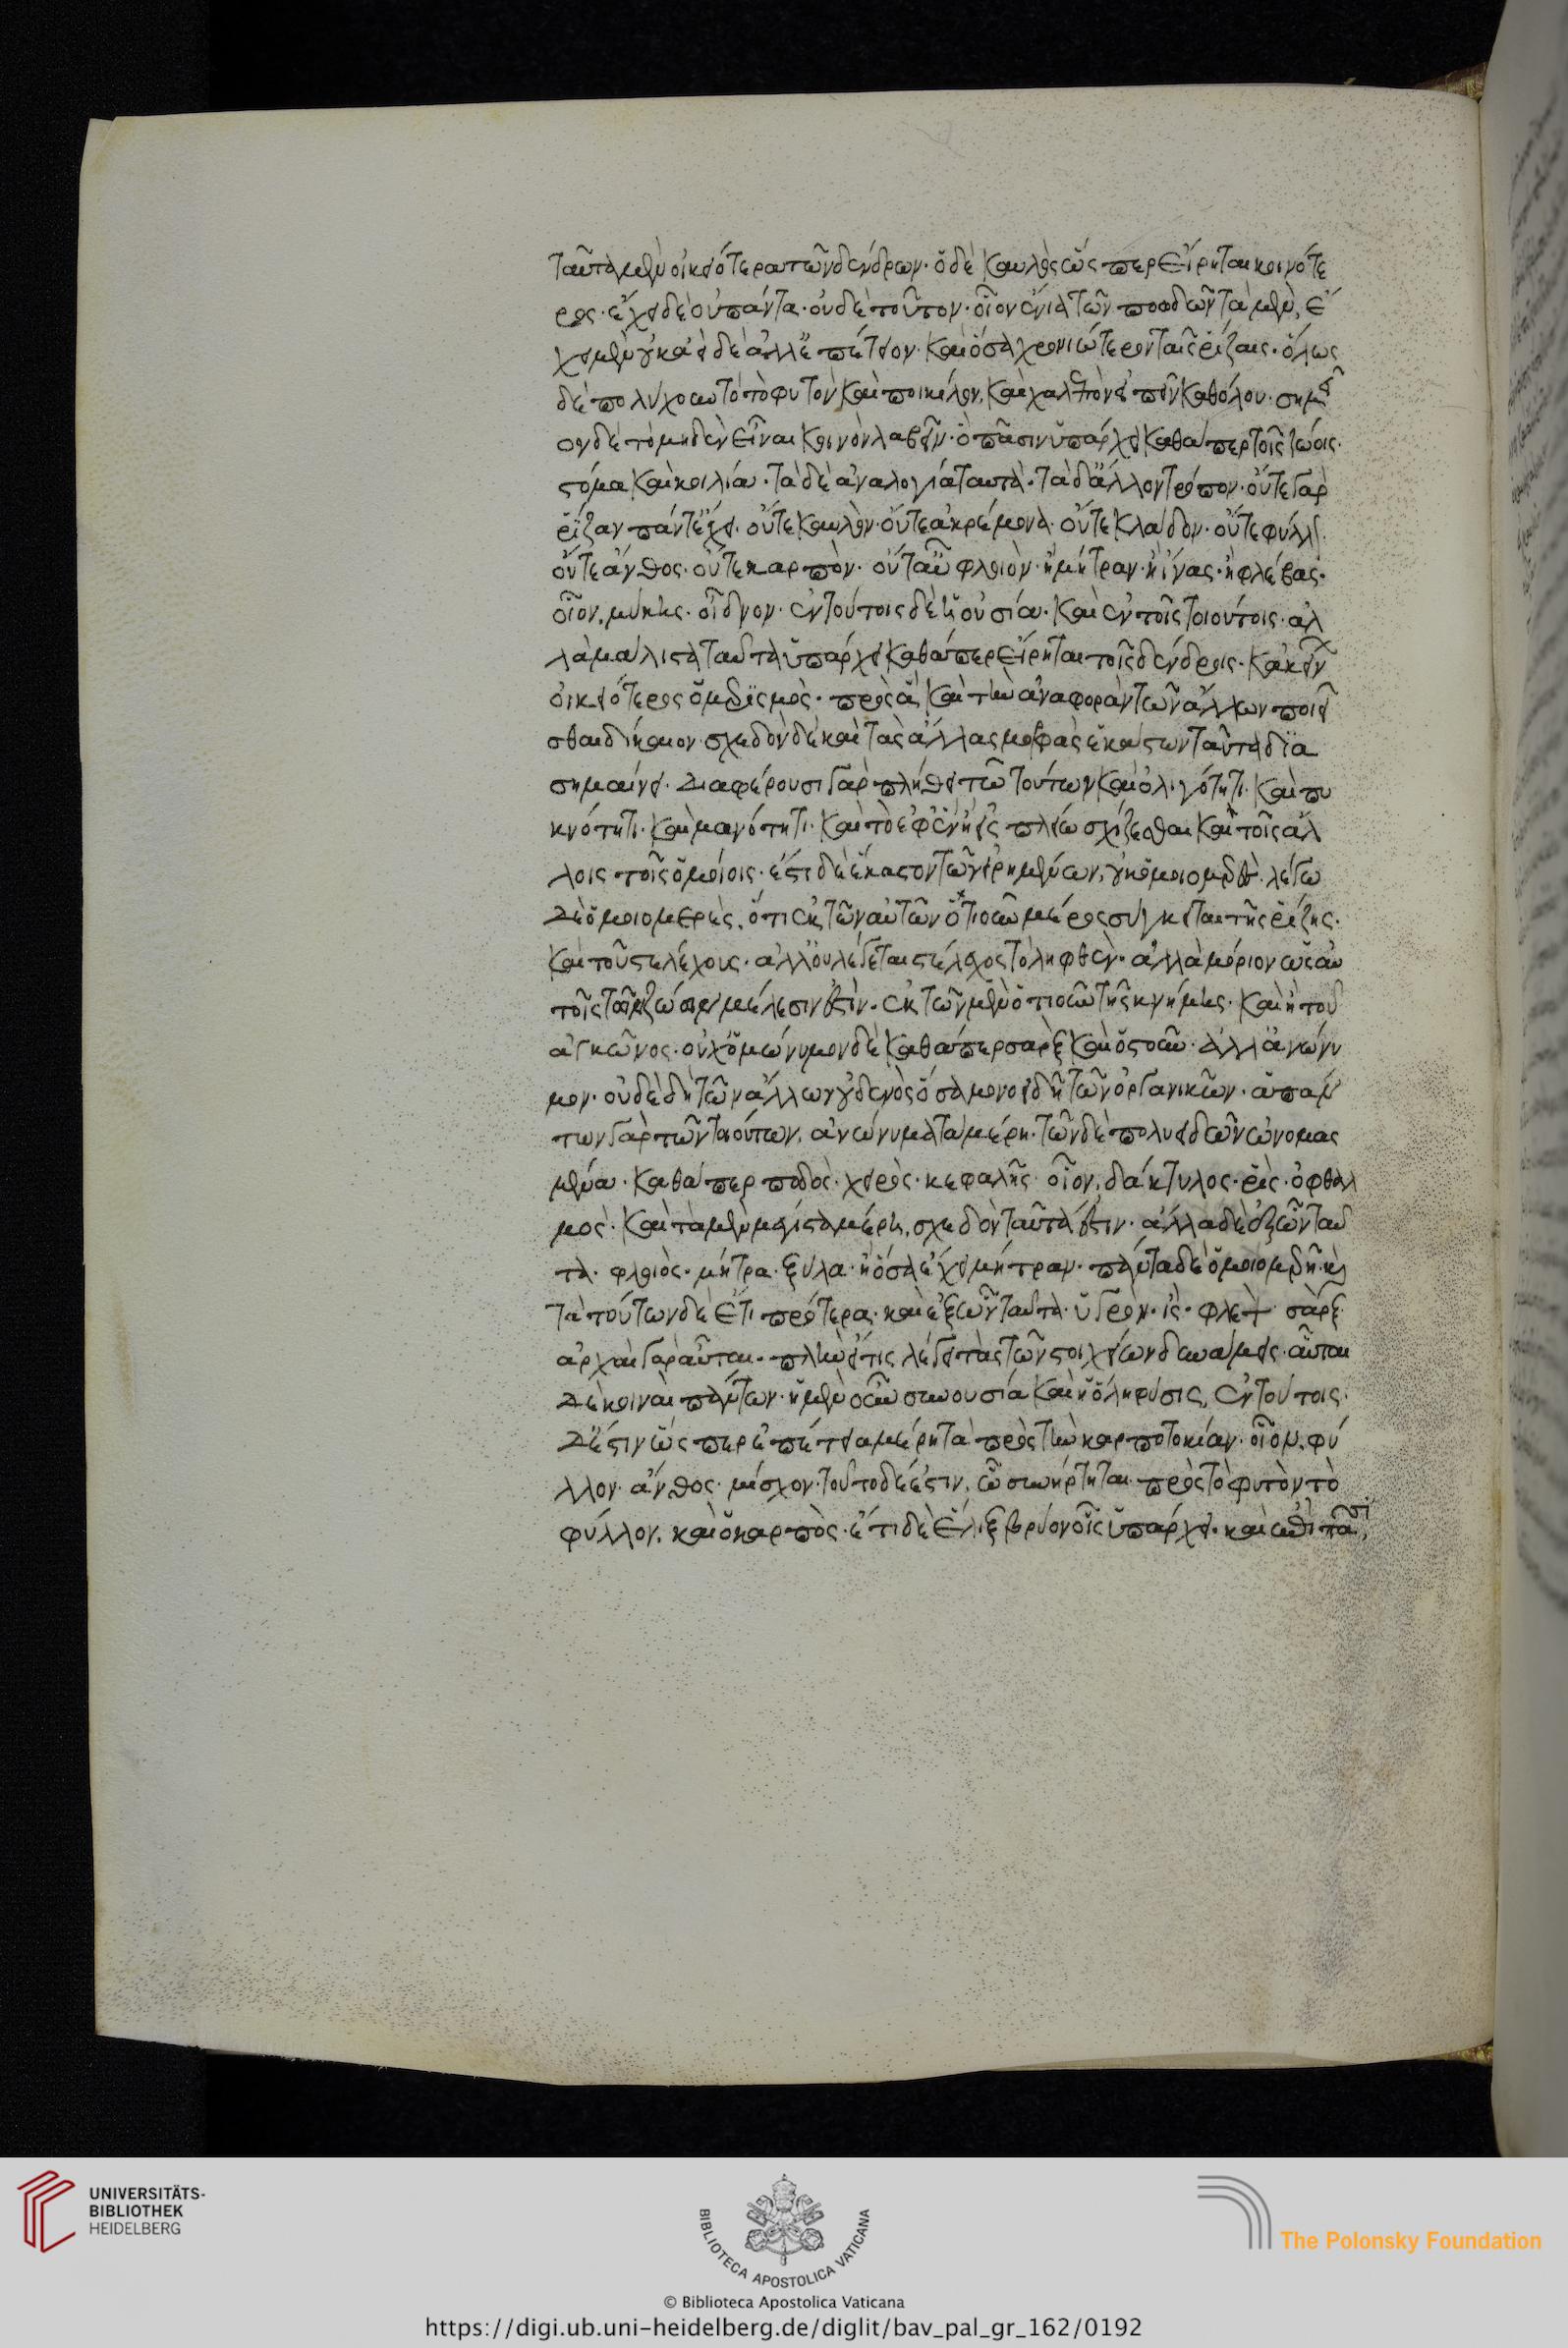 ταῦτα μὲν οἰκειότερα τῶν δένδρων· ὁ δὲ καυλὸς ὥσπερ εἴρηται κοινότε
ρος· ἔχει δὲ οὐ πάντα· οὐδὲ τοῦτον· οἷον ἔνια τῶν ποωδῶν τὰ μὲν, ἔ
χει μὲν οὐκ ἀεὶ δὲ ἀλλ' ἐπέτειον· καὶ ὅσα χρονιώτερον ταῖς ῥίζαις· ὅλως
δὲ πολύχουν τὸ τὸ φυτὸν καὶ ποικίλον, καὶ χαλεπὸν εἰπεῖν καθόλου· σημεῖ
ον δὲ τὸ μηδὲν εἶναι κοινὸν λαβεῖν· ὃ πᾶσιν ὑπάρχει καθάπερ τοῖς ζώοις·
στόμα καὶ κοιλία· τὰ δὲ ἀναλογία ταυτὰ· τὰ δ' ἄλλον τρόπον· οὔτε γὰρ
ῥίζαν πάντ' ἔχει· οὔτε καυλὸν· οὔτε ἀκρέμονα· οὔτε κλάδον· οὔτε φύλλον·
οὔτε ἄνθος· οὔτε καρπὸν· οὔτ' αὖ φλοιὸν· ἢ μήτραν· ἢ ἶνας· ἢ φλέβας·
οἷον, μύκης· οἶδνον· ἐν τούτοις δὲ ἡ οὐσία· καὶ ἐν τοῖς τοιούτοις· ἀλ
λὰ μάλιστα ταῦτα ὑπάρχει καθάπερ εἴρηται τοῖς δένδροις· κἀκείνων
οἰκειότερος ὁ μερισμὸς· πρὸς ἃ καὶ τὴν ἀναφορὰν τῶν ἄλλων ποιεῖ
σθαι δίκαιον· σχεδὸν δὲ καὶ τὰς ἄλλας μορφὰς ἑκάστων ταῦτα δια
σημαίνει· διαφέρουσι γὰρ πλήθει τῶ τούτων καὶ ὀλιγότητι· καὶ πυ
κνότητι· καὶ μανότητι· καὶ τὸ ἐφ' ἓν ἢ εἰς πλείω σχίζεσθαι καὶ τοῖς ἀλ
λοις τοῖς ὁμοίοις· ἔστι δὲ ἕκαστον τῶν εἰρημένων, οὐκ ὁμοιομερὲς· λέγω
δὲ ὁμοιομερὲς, ὅτι ἐκ τῶν αὐτῶν ὁτιοῦν μέρος σύγκειται τῆς ῥίζης·
καὶ τοῦ στελέχους· ἀλλ' οὐ λέγεται στέλεχος τὸ ληφθὲν· ἀλλὰ μόριον ὡς ἐν
τοῖς τῶν ζώων μέλεσιν ἐστὶν· ἐκ τῶν μὲν ὁτιοῦν τῆς κνήμης· καὶ ἢ τοῦ
ἀγκῶνος· οὐχ ὁμώνυμον δὲ καθάπερ σὰρξ καὶ ὀστοῦν· ἀλλ' ἀνώνυ
μον· οὐδὲ δὴ τῶν ἄλλων οὐδενὸς ὅσα μονοειδῆ τῶν ὀργανικῶν· ἁπάν
των γὰρ τῶν τοιούτων, ἀνώνυμα τὰ μέρη· τῶν δὲ πολυειδῶν ὠνομας
μένα· καθάπερ ποδὸς· χειρὸς· κεφαλῆς· οἷον, δάκτυλος· ῥὶς· ὀφθαλ
μὸς· καὶ τὰ μὲν μέγιστα μέρη, σχεδὸν ταῦτα ἐστὶν· ἄλλα δὲ ἐξ ὧν ταῦ
τα· φλοιὸς· μήτρα· ξύλα· ἢ ὅσα ἔχει μήτραν· πάντα δὲ ὁμοιομερῆ· καὶ
τὰ τούτων δὲ ἔτι πρότερα· καὶ ἐξ ὧν ταῦτα· ὑγρὸν· ἲς· φλὲψ· σὰρξ
ἀρχαὶ γὰρ αὗται· πλὴν εἴ τις λέγει τὰς τῶν στοιχείων δυνάμεις· αὗται
δὲ κοιναὶ πάντων· ἡ μὲν οὖν οὐσία καὶ ἡ ὅλη φύσις, ἐν τούτοις·
δ' ἔστιν ὥσπερ ἐπέτεια μέρη τὰ πρὸς τὴν καρποτοκίαν· οἷον, φύ
λλον· ἄνθος· μίσχον· τοῦτο δὲ ἐστιν, ὧ συνήρτηται πρὸς τὸ φυτὸν τὸ
φύλλον, καὶ ὁ καρπὸς· ἔτι δὲ ἕλιξ βρύον οἷς ὑπάρχει· καὶ ἐπὶ πᾶσι,
UNIVERSITÄTS-
BIBLIOTHEK
HEIDELBERG
BIBLIOTECA APOSTOLICA VATICANA
The Polonsky Foundation
© Biblioteca Apostolica Vaticana
https://digi.ub.uni-heidelberg.de/diglit/bav_pal_gr_162/0192